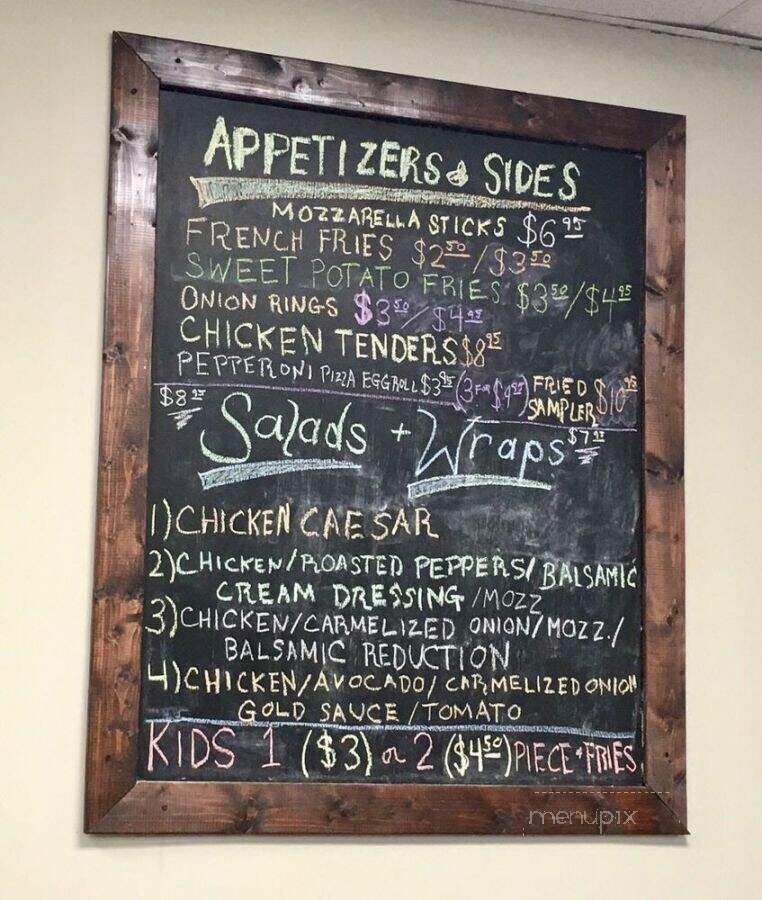 APPETIZERS & SIDES
MOZZARELLA STICKS $6.95
FRENCH FRIES $2.50/$3.50
SWEET POTATO FRIES $3.50/$4.95
ONION RINGS $3.50/$4.95
CHICKEN TENDERS $8.95
PEPPERONI PIZZA EGGROLL $3.95 (3 FOR $9.95) FRIED SAMPLER $10.95
$8.95 Salads + Wraps $7.95
1) CHICKEN CAESAR
2) CHICKEN/ROASTED PEPPERS/BALSAMIC
CREAM DRESSING/MOZZ
3) CHICKEN/CARMELIZED ONION/MOZZ./
BALSAMIC REDUCTION
4) CHICKEN/AVOCADO/CARMELIZED ONION
GOLD SAUCE/TOMATO
KIDS 1 ($3) or 2 ($4.50) PIECE + FRIES
menupix